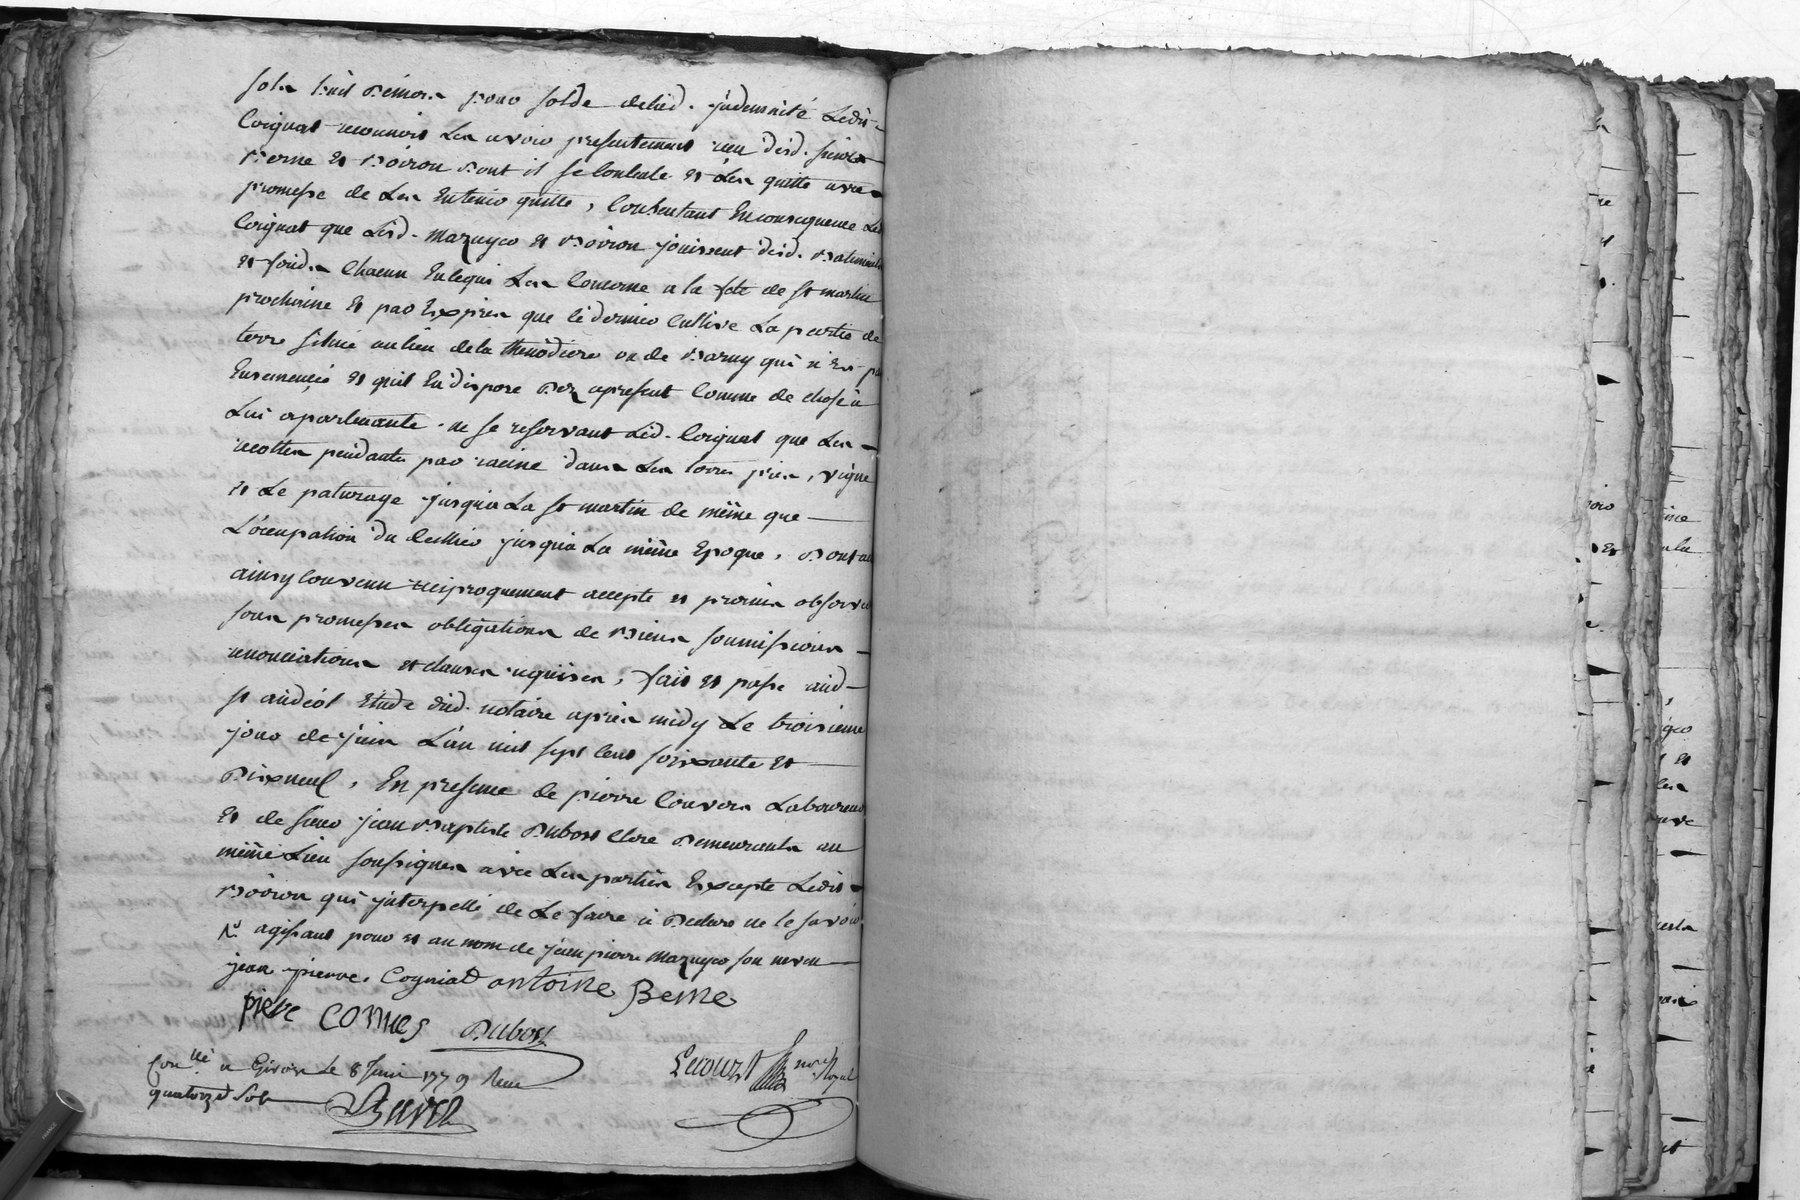 sols huit deniers pour solde deläd. jndemnité Ledit
Coignat reconnoit Les avoir presentement reçu desd. sieurs
Berne et Boiron dont il se Contente et Les quitte avec
promesse de Les Entenir quitte, Consentant Enconsequence Led
Coignat que Lesd. Mazuyer et Boiron jouissent desd. Batiments
et fonds Chacun Cequi Les Concerne a la fete de st martin
prochaine et par Exprès que le dernier Cultive La partie de
terre située aulieu dela thenodiere ou de Barny qui n'Est pas
Ensemencée et quil En dispose Dez apresent Comme de chose à
Lui apartenante. ne se reservant Led. Coignat que Les
recoltes pendantes par racine dans Les terres prés, vigne
et Le paturage jusqu'a La st martin de même que
L'ocupation du Cellier jusqu'a La même Epoque, Dont a
ainsy Convenu reciproquement accepté et promis observer
sous promesses obligations de Biens soumissions
renonciations et clauses requises, fait et passé aud
st andéol Etude dud. notaire après midy Le troisieme
jour de juin L'an mil sept Cent soixante et
Dixneuf, En presence de pierre Couvers Laboureur
et de sieur jean Baptiste Dubost Clerc Demeurants au
même Lieu soussignés avec Les parties Excepté Ledit
Boiron qui jnterpellé de Le faire a Declaré ne le savoir
agissant pour et au nom de jean pierre Mazuyer son neveu
jean pierre Cogniat antoine Berne
piere Dubost
Con.llé a Givors Le 8 Juin 1779 Reçu
quatorze sols
no.re Royal